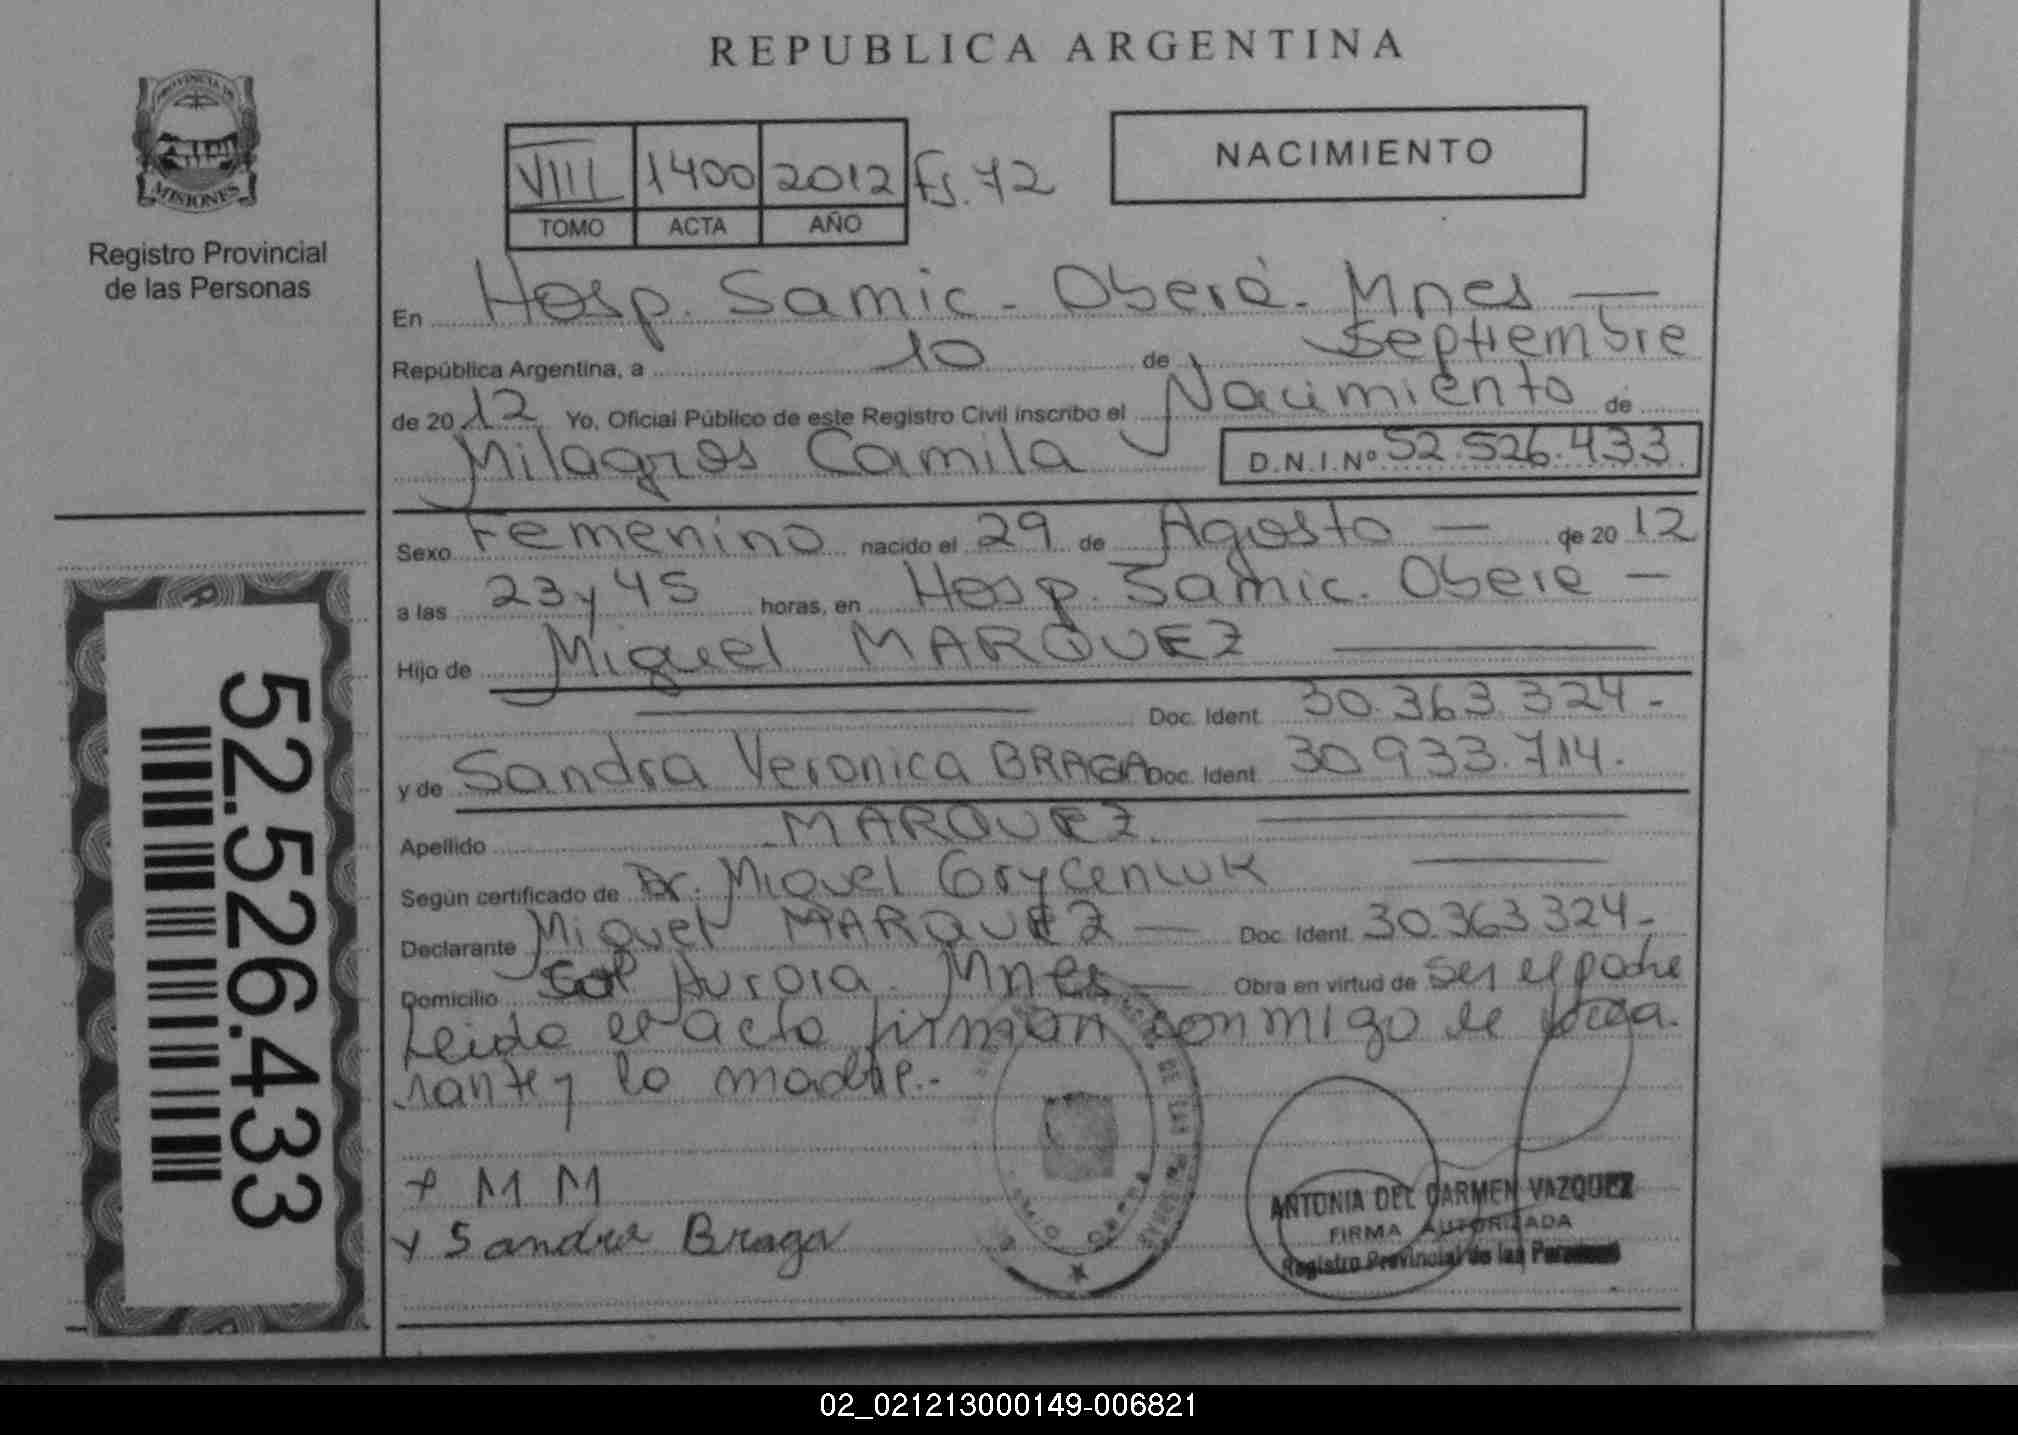 REPUBLICA ARGENTINA
PROVINCIA DE
MISIONES
Registro Provincial
de las Personas
VIII 1400 2012 Fs. 72
TOMO ACTA AÑO
NACIMIENTO
En Hosp. Samic - Oberá. Mnes
República Argentina, a 10 de Septiembre
de 20 12 Yo, Oficial Público de este Registro Civil inscribo el Nacimiento de
Milagros Camila D.N.I. Nº 52.526.433
Sexo Femenino nacido el 29 de Agosto — de 20 12
a las 23 y 45 horas, en Hosp. Samic. Obera —
Hijo de Miguel MARQUEZ
Doc. Ident. 30.363.324-
y de Sandra Veronica BRAGA Doc. Ident. 30933.714.
Apellido MARQUEZ.
Según certificado de Dr. Miguel
Declarante Miguel MARQUEZ — Doc. Ident. 30.363324-
Domicilio Col Aurora. Mnes — Obra en virtud de ser el padre
Leida el acta firman conmigo el
rante y la madre.-
+ M M
x Sandra Braga
DE LAS
ANTONIA DEL CARMEN VAZQUEZ
FIRMA AUTORIZADA
Registro Provincial de las Personas
52.526.433
02_021213000149-006821